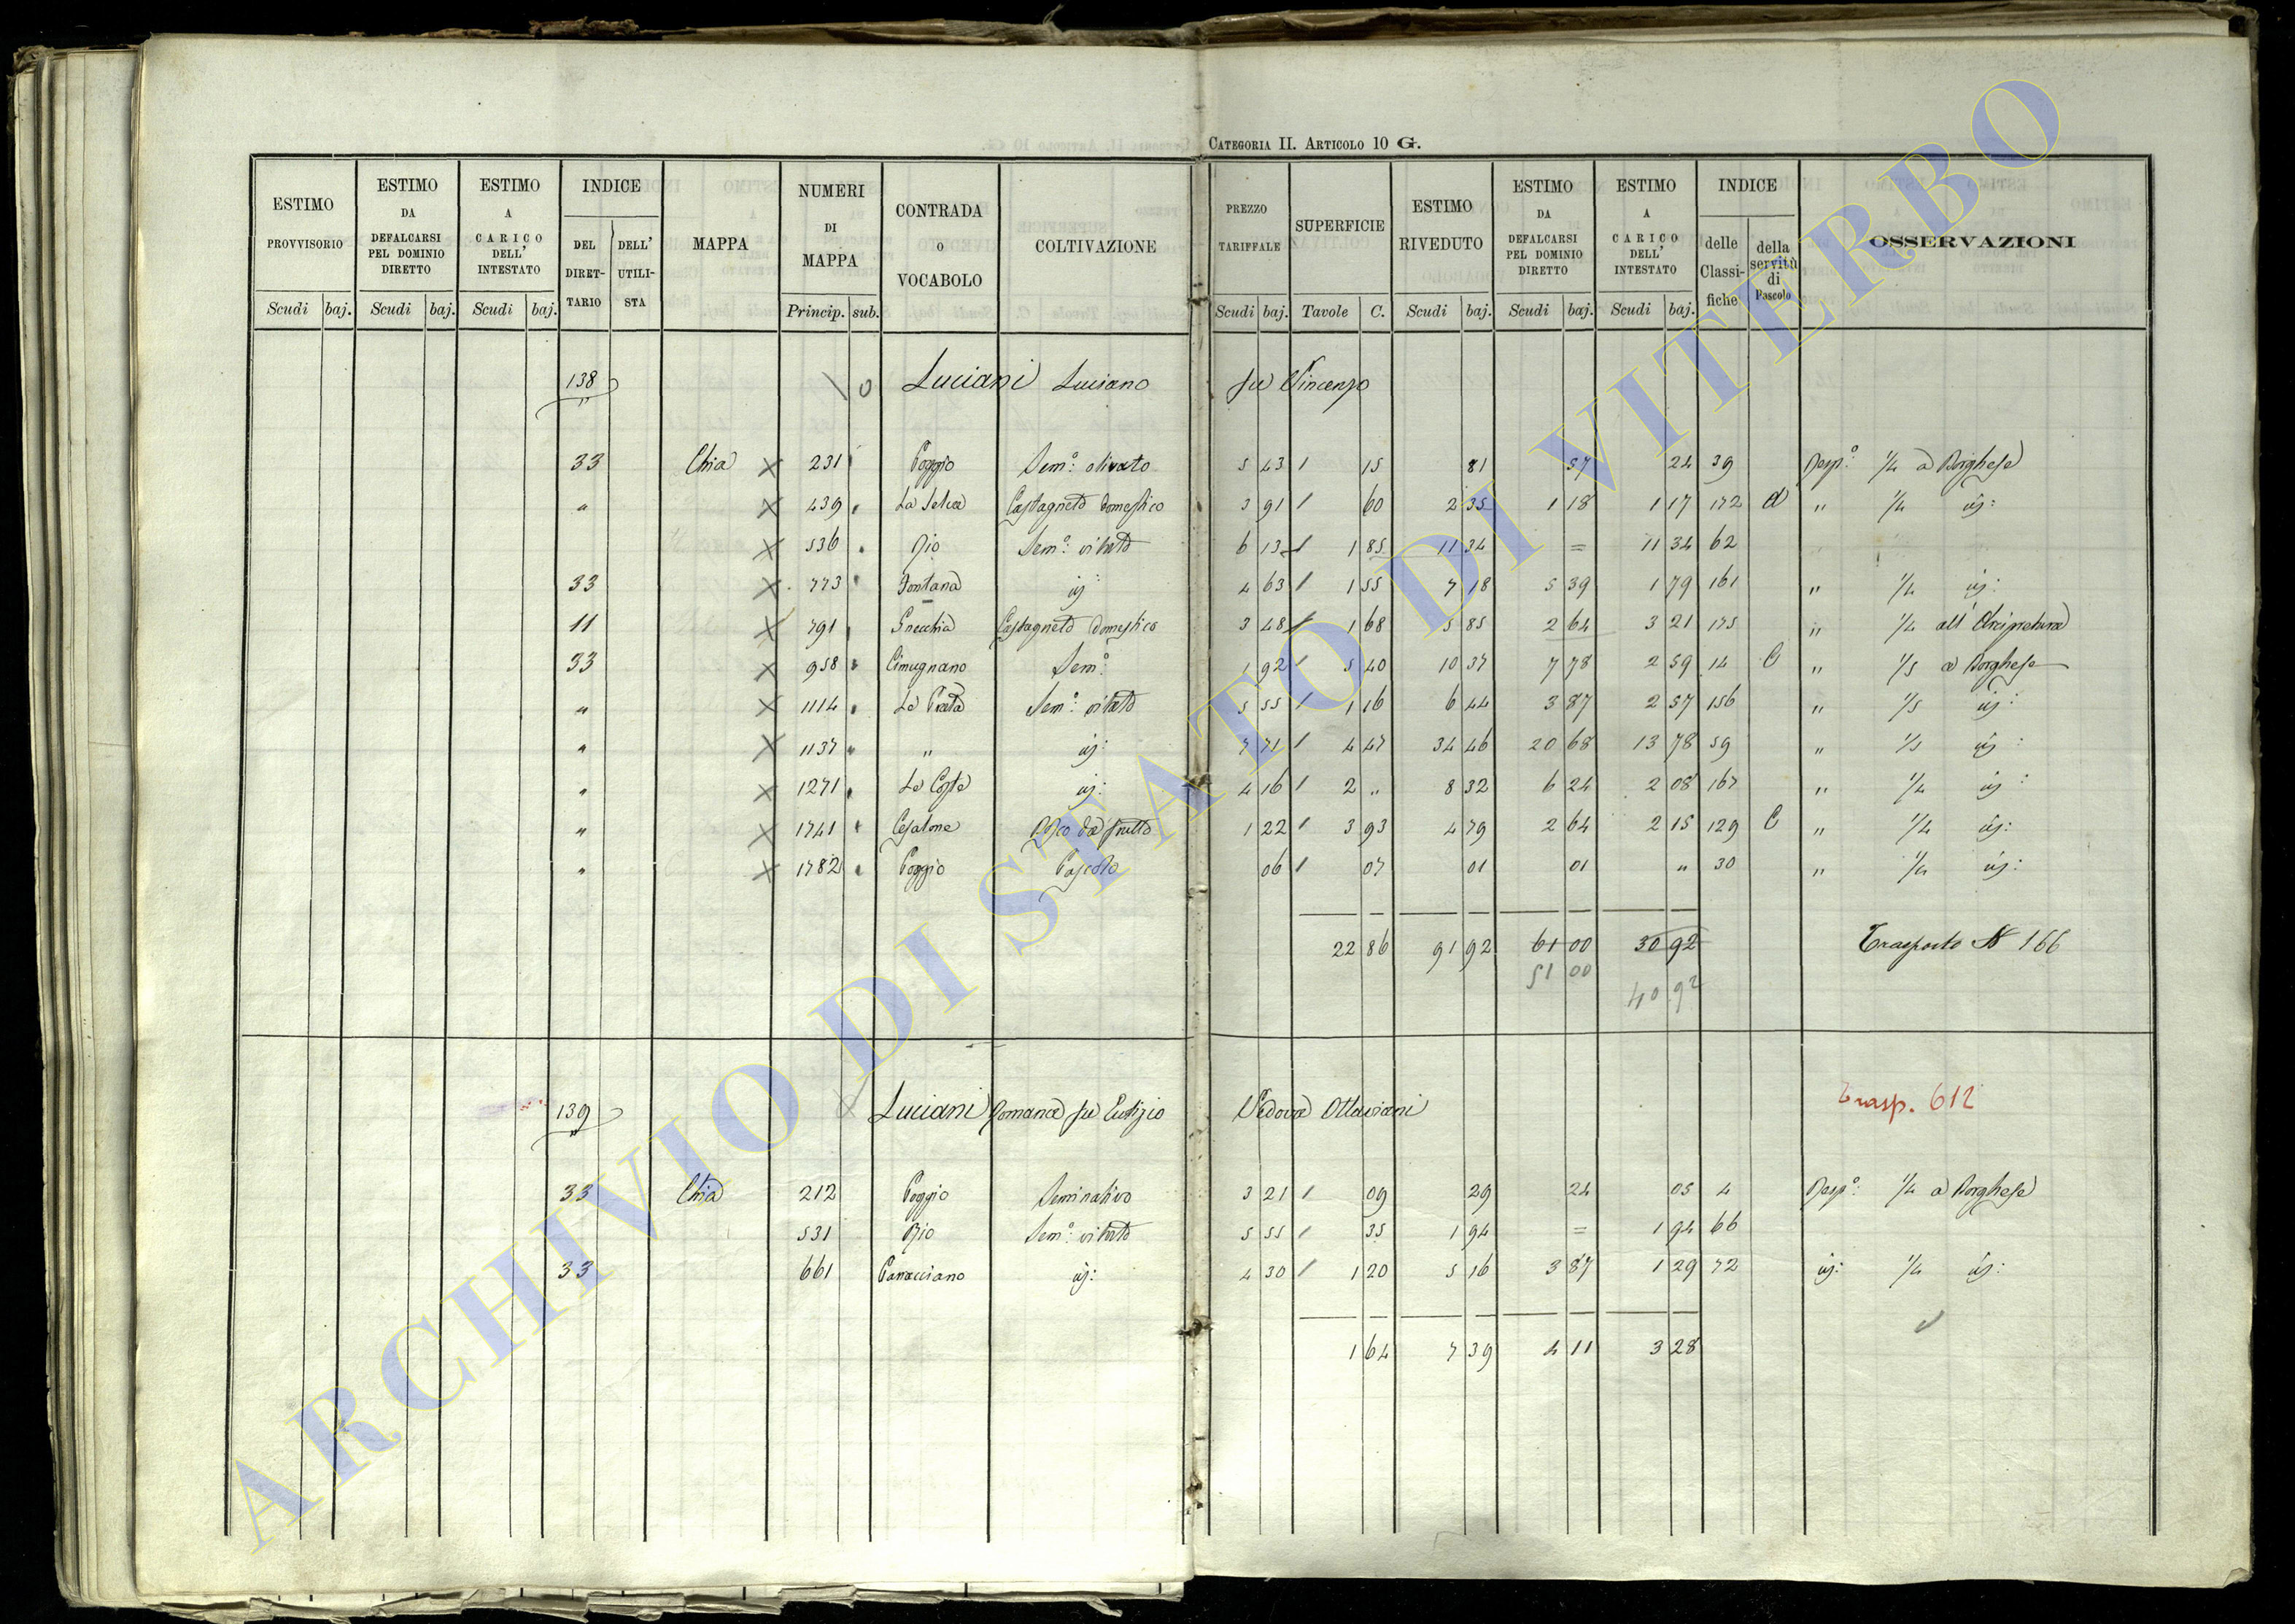 CATEGORIA II. ARTICOLO 10 G.
ESTIMO PROVVISORIO Scudi baj.
ESTIMO DA DEFALCARSI PEL DOMINIO DIRETTO Scudi baj.
ESTIMO A CARICO DELL' INTESTATO Scudi baj.
INDICE DEL DIRETTARIO DELL' UTILISTA
MAPPA
NUMERI DI MAPPA Princip. sub.
CONTRADA O VOCABOLO
COLTIVAZIONE
PREZZO TARIFFALE Scudi baj.
SUPERFICIE Tavole C.
ESTIMO RIVEDUTO Scudi baj.
ESTIMO DA DEFALCARSI PEL DOMINIO DIRETTO Scudi baj.
ESTIMO A CARICO DELL' INTESTATO Scudi baj.
INDICE delle Classifiche della servitù di Pascolo
OSSERVAZIONI
138 Luciani Luciano fu Vincenzo
33 Chia 231 Poggio Sem.o olivato 5 43 15 81 57 24 39 Resp.o 1/4 a Borghese
" 439 La Selva Castagneto domestico 3 91 60 2 35 1 18 1 17 172 d " 1/4 id:
536 Rio Sem.o vitato 6 13 1 85 11 34 = 11 34 62
33 773 Fontana id: 4 63 1 55 7 18 5 39 1 79 161 " 1/4 id:
11 791 Castagneto domestico 3 48 1 68 5 85 2 64 3 21 175 " 1/4 all' Arcipretura
33 958 Cimugnano Sem.o 1 92 5 40 10 37 7 78 2 59 14 C " 1/5 a Borghese
" 1114 Le Prata Sem.o vitato 5 55 1 16 6 44 3 87 2 57 156 " 1/5 id:
" 1137 " id: 7 71 4 47 34 46 20 68 13 78 59 " 1/5 id:
" 1271 Le Coste id: 4 16 2 " 8 32 6 24 2 08 167 " 1/4 id:
" 1741 Cesalone Bosco da frutto 1 22 3 93 4 79 2 64 2 15 129 C " 1/4 id:
" 1782 Poggio Pascolo 06 07 01 01 " 30 " 1/4 id:
22 86 91 92 61 00 30 92 Trasporto N 166
51 00
40 92
139 Luciani Romana fu Eutizio Vedova Ottaviani Trasp. 612
33 Chia 212 Poggio Seminativo 3 21 09 29 24 05 4 Resp.o 1/4 a Borghese
531 Rio Sem.o vitato 5 55 35 1 94 = 1 94 66
33 661 Paracciano id: 4 30 1 20 5 16 3 87 1 29 72 id: 1/4 id:
1 64 7 39 4 11 3 28
ARCHIVIO DI STATO DI VITERBO